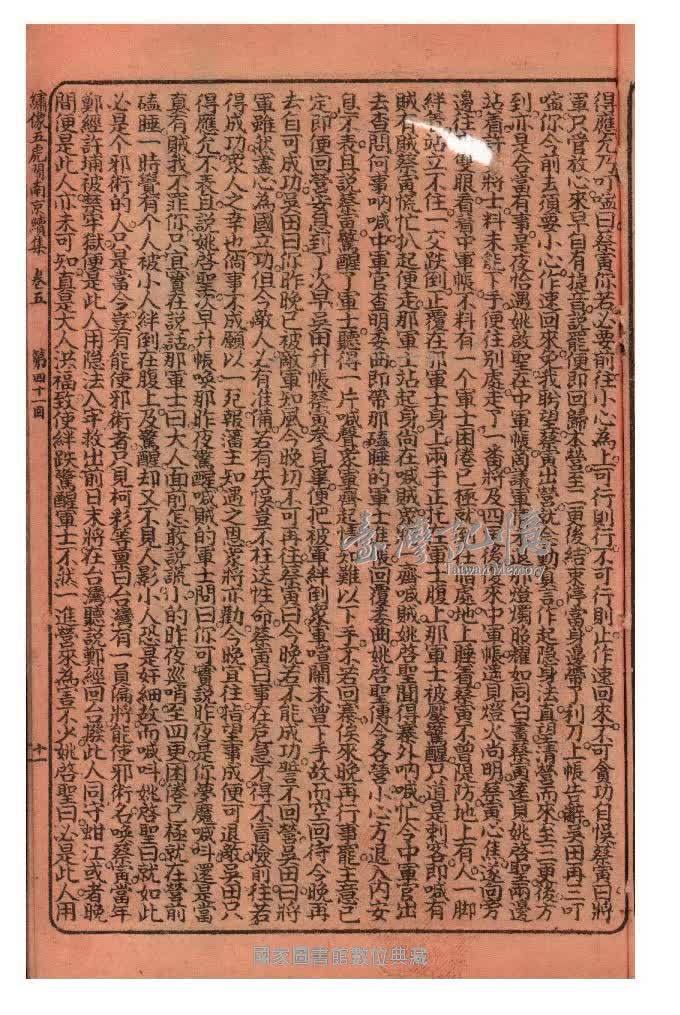 得應允乃叮嚀曰蔡寅你若必要前往小心為上可行則行不可行則止作速回來不可貪功自悞蔡寅曰將
軍只管放心來早自有捷音說罷便即回歸本營至二更後結束停當身邊帶了利刀一帳告辭吳田再三叮
嚀你今前去須要小心作速回來免我盼望蔡寅出營就念動真言作起隱身法直望清營而來至三更後方
到亦是合當有事是夜恰遇姚啟聖在中軍帳商議軍 那燈燭照耀如同白晝蔡寅達見姚啟聖兩邊
站着 將士料未能下手便往別處走了一番將及四更後 來中軍帳迎見燈火尚明蔡寅心焦遂回旁
邊住 雙眼看着中軍帳不料有一個軍士困倦已極就 指處地上睡着蔡寅不曾隄防地上有人一脚
絆着站立不住一交跌倒正覆在那軍士身上兩手正抚 軍士腹上那軍士被壓驚醒只道是刺客即喊有
賊有賊蔡寅慌忙扒起便走那軍士站起身尚在喊賊成 齊喊賊姚啟聖聞得寨外吶喊忙令中軍官出
去查問何事吶喊中軍官查明委曲即帶那磕睡的軍士進帳回覆委曲姚啟聖傳令各營小心方退入內安
息不表且說蔡寅驚醒了軍士聽得一片喊聲眾軍齊起 難以下手不若回寨俟來晚再行事罷主意已
定即便回營安息到了次早吳田升帳蔡寅叅見畢便把被軍絆倒眾軍喧鬧未曾下手故而空回待今晚再
去自可成功吳田曰你昨晚已被敵軍知風今晚切不可再往蔡寅曰今晚若不能成功誓不回營吳田曰將
軍雖狀盡心為國立功但今敵人必有准備若有失悞豈不枉送性命蔡寅曰事在危急不得不冒險前往若
得成功眾人之幸也倘事不成願以一死報藩主知遇之恩眾將亦勸今晚宜往指望事成便可退敵吳田只
得應允不表且說姚啟聖次早升帳喚那昨夜驚醒喊賊的軍士問曰你可實說昨夜是你夢魔喊呌還是當
真有賊我不罪你只宜實在說話那軍士曰大人面前怎敢說謊小的昨夜巡哨至四更困倦已極就在營前
磕睡一時纔有个人被小人絆倒在腹上及驚醒却又不見人影小人恐是奸細故而喊叫姚啟聖曰就如此
必是个邪術的人只是當今豈有能使邪術者只見柯彩等禀曰台灣有一員偏將能使邪術名喚蔡寅當年
鄭經許埔被禁牢獄便是此人用隐法入牢救出前日末將在台灣聽說鄭經回台撥此人同守蚶江或者晚
間便是此人亦未可知真是大人洪福致使絆跌驚醒軍士不狀一進營來為害不少姚啟聖曰必是此人用
繡像五虎鬧南京續集 卷五 第四十一回 十一
臺灣記憶
Taiwan Memory
國家圖書館數位典藏